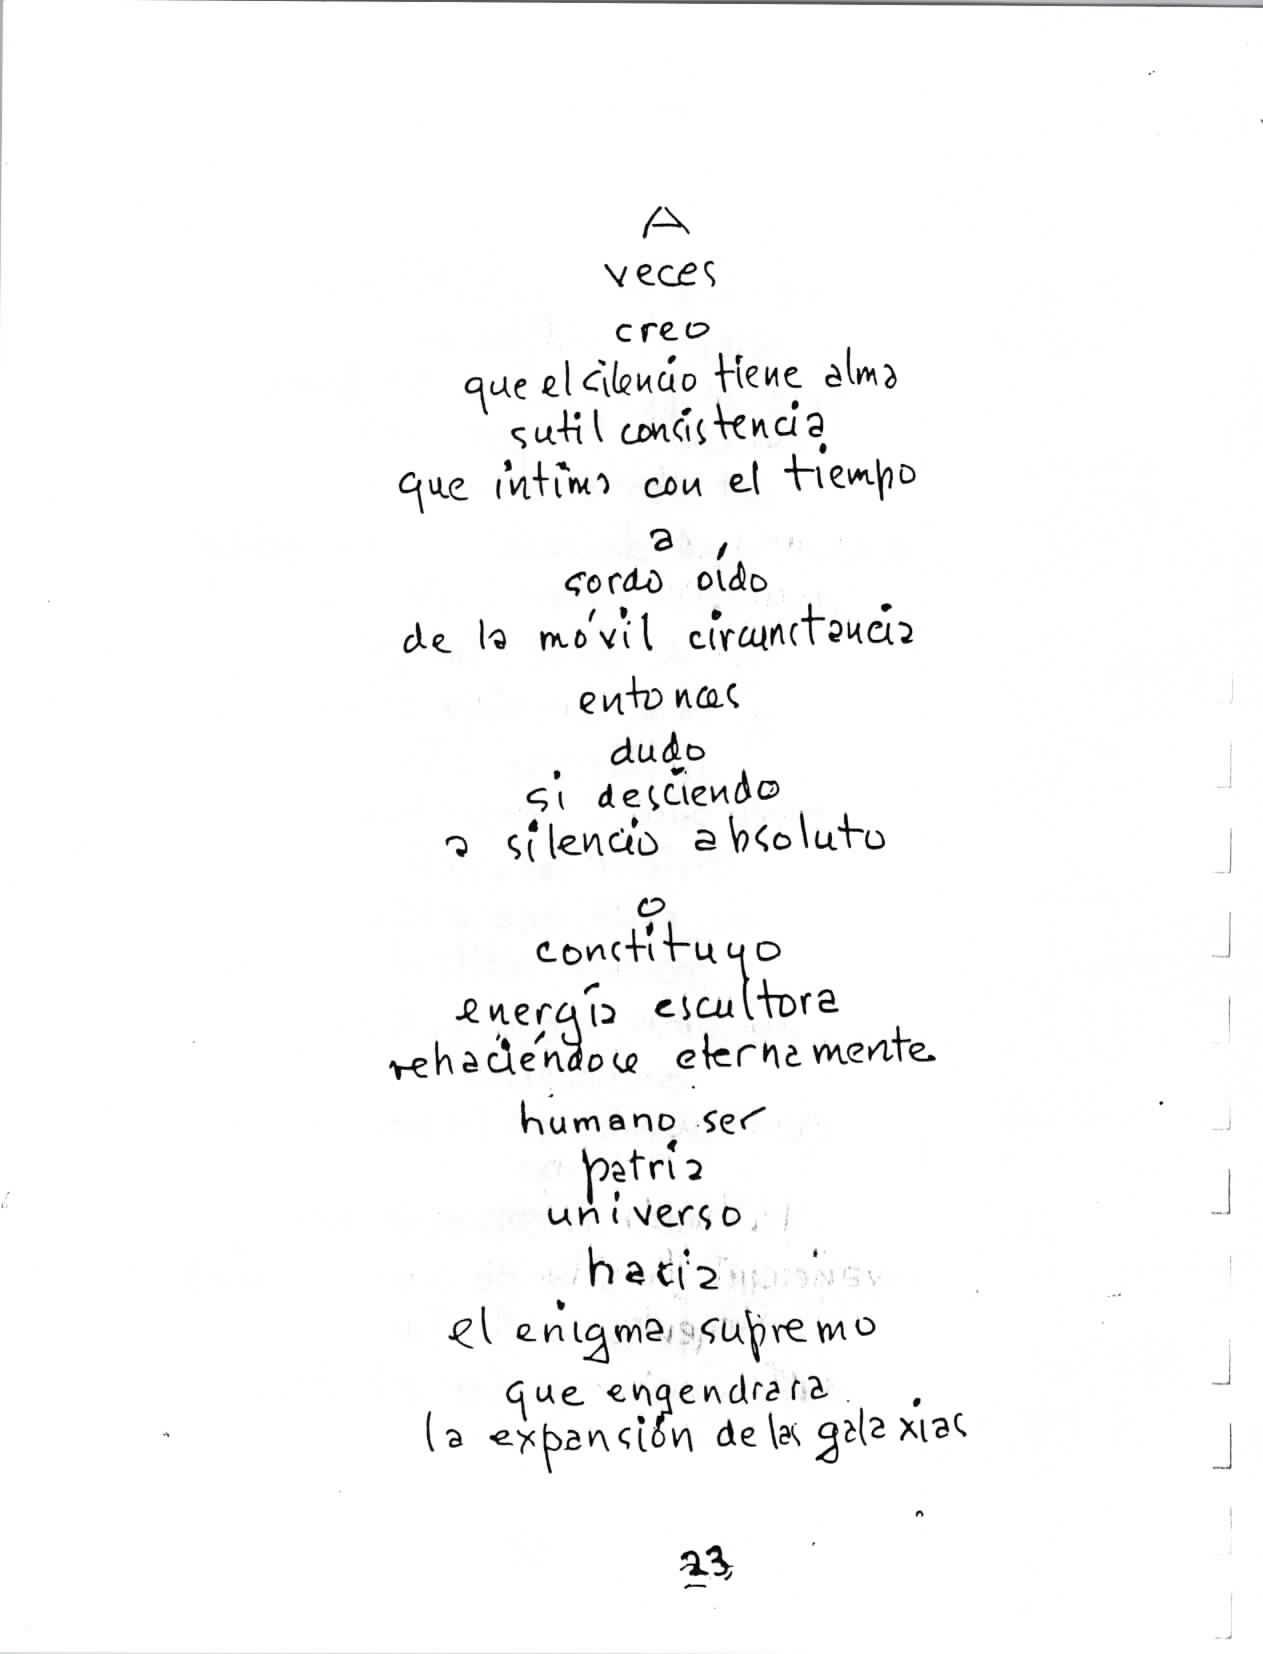 A
veces
creo
que el silencio tiene alma
sutil consistencia
que intima con el tiempo
a
sordo oído
de la móvil circunstancia
entonces
dudo
si desciendo
a silencio absoluto
o
constituyo
energía escultora
rehaciéndose eternamente
humano ser
patria
universo
hacia
el enigma supremo
que engendrara
la expansión de las galaxias
23